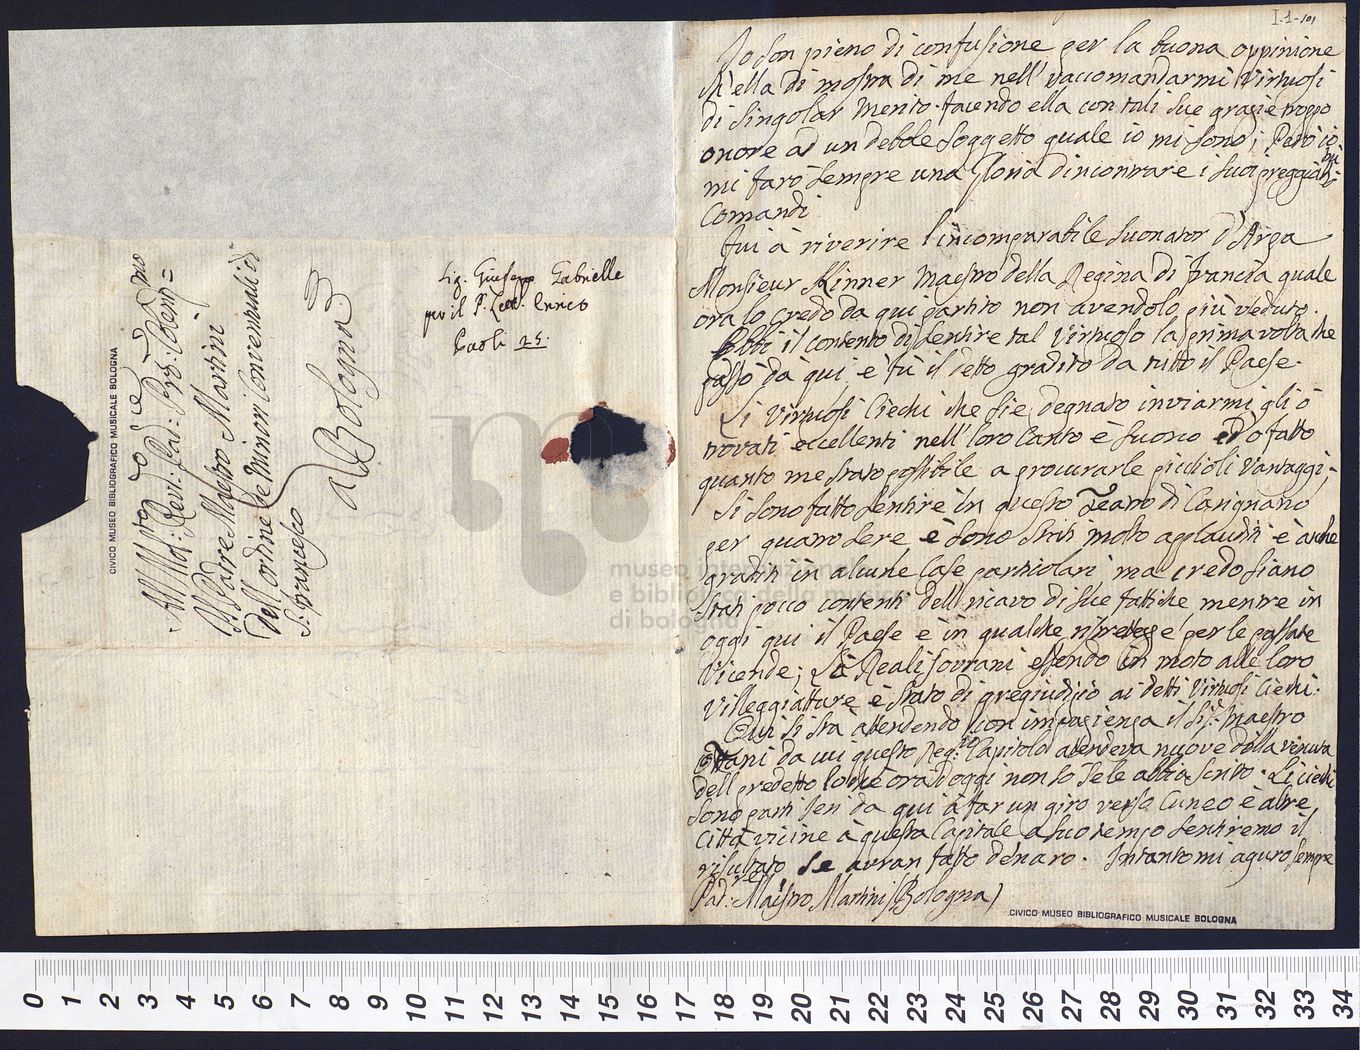 All Mol: Revd: Pad: Prõ: Colemo=
Il Padre Maestro Martini
Dell'ordine de Minori Conventuali di
S: Francesco
a Bologna
CIVICO MUSEO BIBLIOGRAFICO MUSICALE BOLOGNA
Sig. Giusepp Gabrielle
per il P. Lett. Ennco
Paoli 25.
I-1-101
Io son pieno di confusione per la buona oppinione
ch'ella di mostra di me nell'raccomandarmi Virtuosi
di Singolar merito facendo ella con tali sue grazie troppo
onore ad un debole soggetto quale io mi sono; Però io
mi farò sempre una gloria d'incontrare i suoi preggiabi
li
Comandi
fui à riverire l'incomparabile suonator d'Arpa
Monsieur Hinner Maestro della Regina di francia quale
ora lo credo da qui partito non avendolo più veduto.
Ebbi il contento di sentire tal Virtuoso la prima volta che
passò da qui, è fù il detto gradito da tutto il Paese.
Li Virtuosi Ciechi che si è degnato inviarmi gli ò
trovati eccellenti nell'loro Canto è suono ed ò fatto
quanto m'e stato possibile a procurarle piccioli Vantaggi;
Si sono fatto sentire in questo Teatro di Carignano
per quatro sere è sono stati molto applauditi è anche
graditi in alcune Case particolari ma credo siano
stati pocco contenti dell'ricavo di sue fattiche mentre in
oggi qui il Paese è in qualche ristretezze per le passate
Vicende; Li Reali sovrani essendo in moto alle loro
Villeggiatture è stato di pregiudizio ai detti Virtuosi Ciechi.
Qui si stà attendendo con impazienza il Sig.r Maestro
Ottani da cui questo Reg.o Capitolo attendeva nuove della venuta
dell predetto locchè ora d'oggi non so se le abbia scritto. Li ciechi
sono partiti jeri da qui à far un giro verso Cuneo è altre
Città vicine à questa Capitale a suo tempo sentiremo il
risultato se avran fatto denaro. Intanto mi aguro sempre
Pad:re Maestro Martini (Bologna)
CIVICO MUSEO BIBLIOGRAFICO MUSICALE BOLOGNA
museo internazionale
e biblioteca della musica
di bologna
0 1 2 3 4 5 6 7 8 9 10 11 12 13 14 15 16 17 18 19 20 21 22 23 24 25 26 27 28 29 30 31 32 33 34